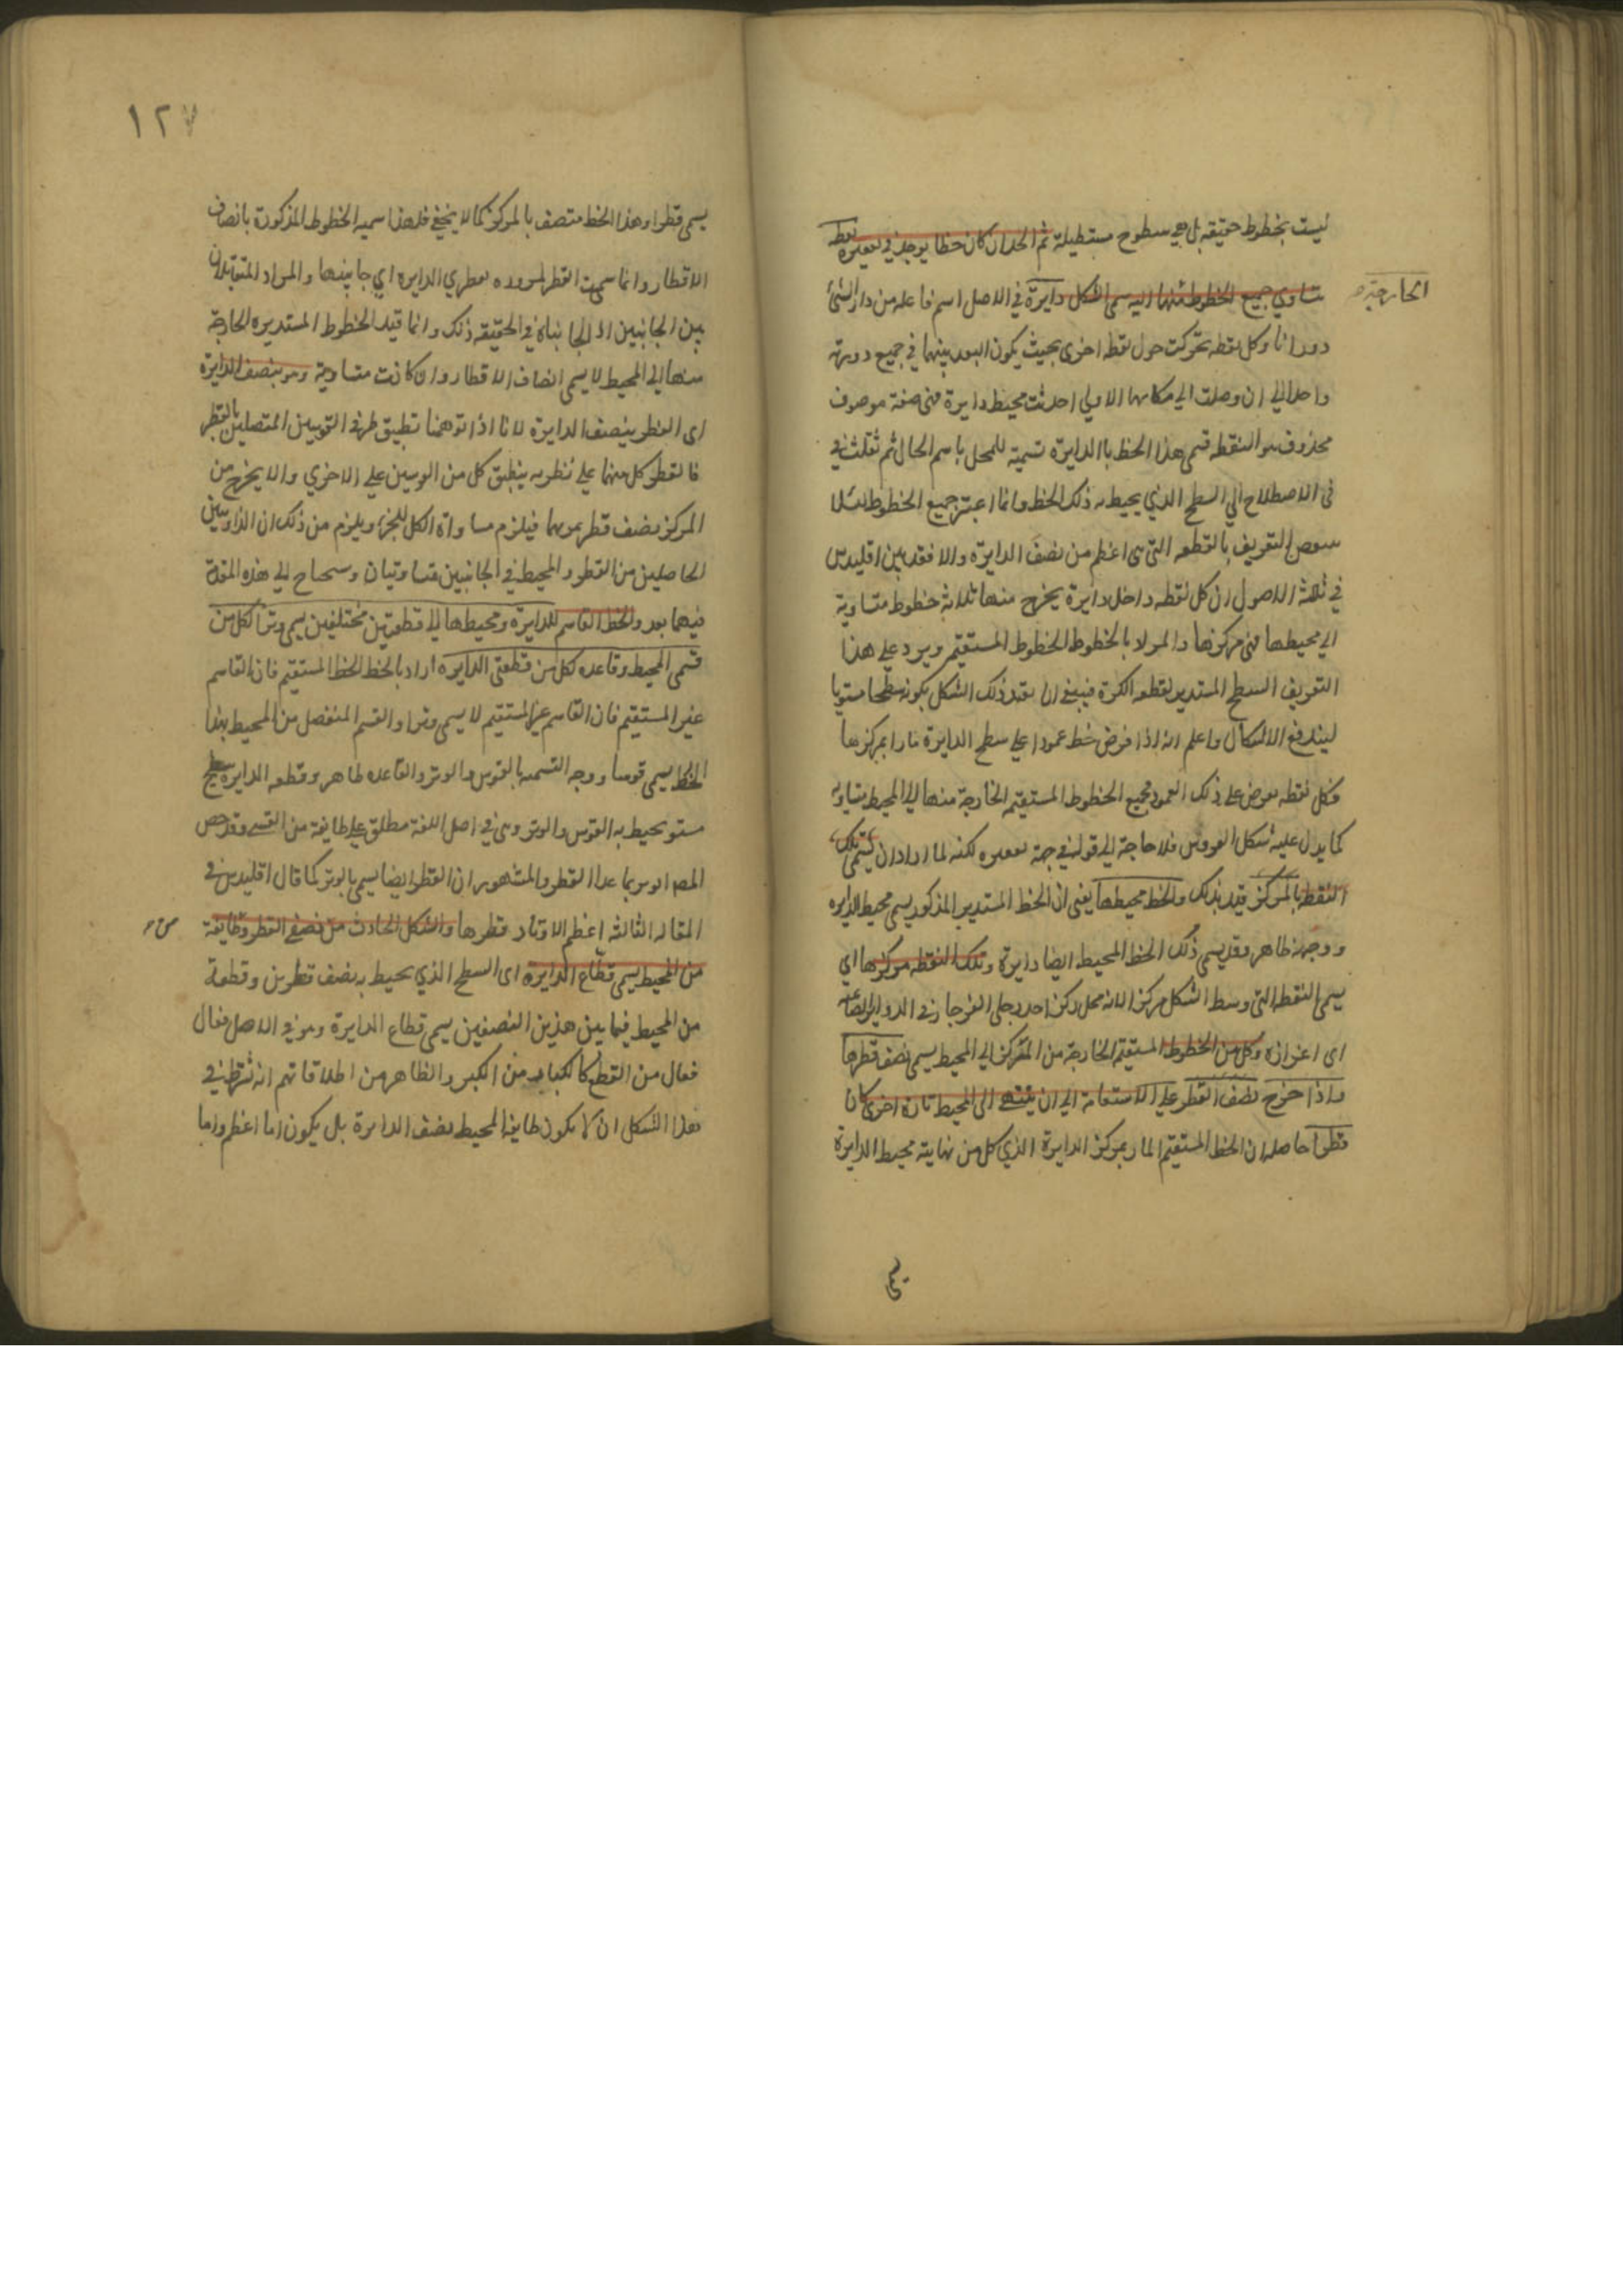 ليست بخطوط حقيقه بل هي سطوح مستطيلة ثم الحد ان كان خطا يوجد في مقعره نقطه
تتساوي جميع الخطوط منها اليه سمى الشكل دايرة في الاصل اسم فاعله من دار الشئ
الخارجة
دورانا وكل نقطه تحركت حول نقطه اخرى بحيث يكون البعد بينهما في جميع دورته
واحدا الي ان وصلت الي مكانها الاولي احدثت محيط دايرة فهى صفة موصوف
محذوف هو النقطه فسمى هذا الخط باالدايرة تسمية للمحل باسم الحال ثم نقلت في
فى الاصطلاح الي السطح الذي يحيط به ذلك الخط وانما اعتبر جميع الخطوط لئلا
التعريف بالقطعه التى هى اعظم من نصف الدايرة والا فقد بين اقليدس
في ثالثة الاصول ان كل نقطه داخل دايرة يخرج منها ثلاثة خطوط متساوية
الي محيطها فهى مركزها والمراد بالخطوط الخطوط المستقيم ويرد علي هذا
التعريف السطح المستدير لقطعه الكرة فينبغى ان يقيد ذلك الشكل بكونه سطحا مستويا
ليندفع الاشكال واعلم انه اذا فرض خط عمودا علي سطح الدايرة مارا بمركزها
فكل نقطه تفرض علي ذلك العمود فجميع الخطوط المستقيم الخارجة منها الي المحيط متساويه
كما يدل عليه شكل العروس فلا حاجة الي قوله في جهة مقعره لكنه لما اراد ان يسمى تلك
النقطه بالمركز قيد بذلك والخط محيطها يعنى ان الخط المستدير المذكور يسمى محيط الدايره
ووجهه ظاهر وقد يسمى ذلك الخط المحيط ايضا دايرة وتلك النقطه مركزها اي
يسمى النقطه التى وسط الشكل مركز الانه محل ركز احد رجلي الفرجار في الدواير
اى اغرازه وكل من الخطوط المستقيم الخارجة من المركز الي المحيط يسمى نصف قطرها
واذا خرج نصف القطر علي الاستقامة الي ان ينتهى الى المحيط تارة اخرى كان
قطرا حاصله ان الخط المستقيم المار بمركز الدايرة الذي كل من نهايته محيط الدايرة
١٢٧
يسمى قطرا وهذا الخط منتصف بالمركز كما لا يخفى فلهذا سميه الخطوط المذكورة بانصاف
الاقطار وانما سميت القطر لمروره بقطري الدايره اي جانبيها والمراد المتقابلان
بين الجانبين اذ الجانبان في الحقيقه ذلك وانما قيد الخطوط المستديره الخارجة
منها الي المحيط لا يسمى انصاف الاقطار وان كانت متساوية وهو ينصف الدايرة
اى القطر ينصف الدايرة لانا اذا توهمنا تطبيق طرفى القوسين المتصلين بالقطر
فالقطر كل منهما علي نظريه ينطبق كل من القوسين علي الاخري والا يخرج من
المركز نصف قطر يمر بهما فيلزم مساواة الكل للجزء ويلزم من ذلك ان الزاويتين
الحاصلين من القطر والمحيط في الجانبين متساويتان وسحتاج الي هذه المقدمة
فيما بعد والخط القاسم للدايرة ومحيطها الي قطعتين مختلفين يسمى وترا لكل من
قسمى المحيط وقاعده لكل من قطعتى الدايره اراد بالخط الخط المستقيم فان القاسم
غير المستقيم فان القاسم غير المستقيم لا يسمى وترا والقسم المنفصل من المحيط بهذا
الخط يسمى قوسا ووجه التسميه بالقوس والوتر والقاعده ظاهر وقطعه الدايره سطح
مستو يحيط به القوس والوتر وهى في اصل اللغة مطلق علي طايفة من الشي وقد خص
المصر الوتر بما عدا القطر والمشهور ان القطر ايضا يسمى بالوتر كما قال اقليدس في
المقاله الثالثه اعظم الاوتار قطرها والشكل الحادث من نصفى القطر وطايفة
من المحيط يسمى قطاع الدايره اى السطح الذي يحيط به نصف قطرين وقطعة
من المحيط فيما بين هذين النصفين يسمى قطاع الدايرة وهو في الاصل فعال
فعال من القطع كالكبار من الكبر والظاهر من اطلاقاتهم انه شرط في
هذا الشكل ان لا يكون طايفة المحيط نصف الدايرة بل يكون اما اعظم واما